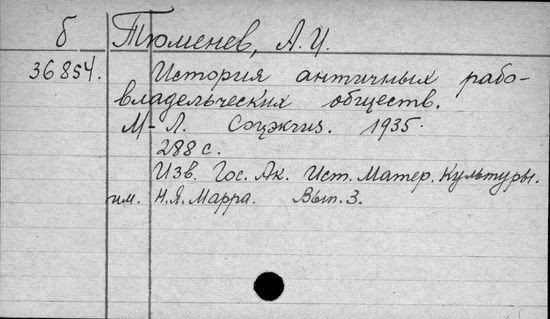 б Тюменев, А. И.
36854. История античных рабо-
владельческих обществ.
М-Л. Соцэкгиз. 1935.
288 с.
Изв. Гос. Ак. Ист. Матер. Культуры.
им. Н.Я. Марра. Вып. 3.